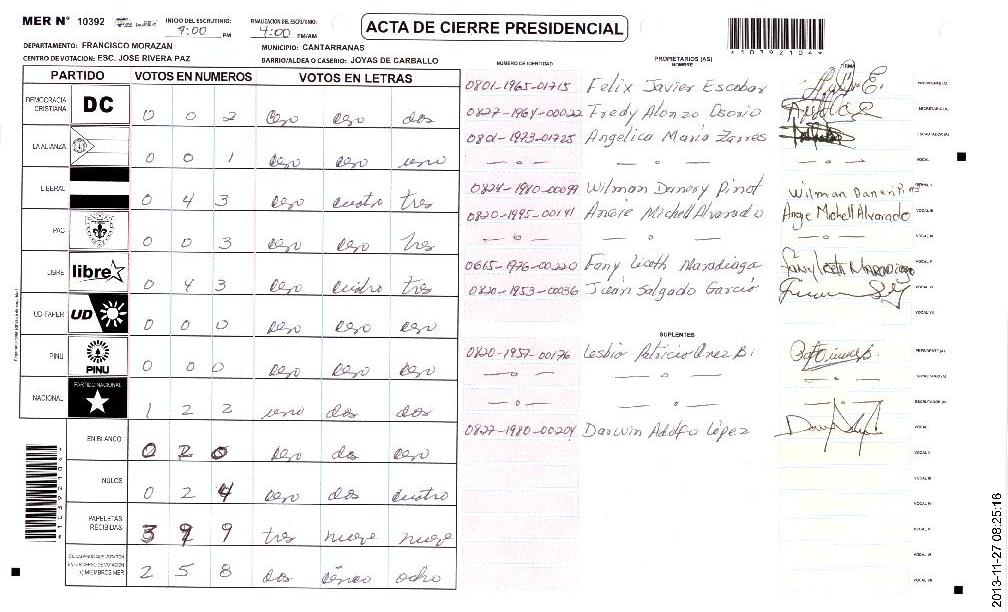 MER Nº 10392 INICIO DEL ESCRUTINIO: 9:00 PM FINALIZACION DEL ESCRUTINIO: 4:00 PM/AM
ACTA DE CIERRE PRESIDENCIAL
*10392104*
DEPARTAMENTO: FRANCISCO MORAZAN MUNICIPIO: CANTARRANAS
CENTRO DE VOTACION: ESC. JOSE RIVERA PAZ BARRIO/ALDEA O CASERIO: JOYAS DE CARBALLO
PARTIDO VOTOS EN NUMEROS VOTOS EN LETRAS
DEMOCRACIA CRISTIANA DC 0 0 2 cero cero dos
LA ALIANZA 0 0 1 cero cero uno
LIBERAL 0 4 3 cero cuatro tres
PAC 0 0 3 cero cero tres
LIBRE libre 0 4 3 cero cuatro tres
UD-FAPER UD 0 0 0 cero cero cero
PINU PINU 0 0 0 cero cero cero
NACIONAL PARTIDO NACIONAL 1 2 2 uno dos dos
EN BLANCO 0 2 0 cero dos cero
NULOS 0 2 4 cero dos cuatro
PAPELETAS RECIBIDAS 3 9 9 tres nueve nueve
2 5 8 dos cinco ocho
NUMERO DE IDENTIDAD PROPIETARIOS (AS) NOMBRE FIRMA
0801-1965-01715 Felix Javier Escobar PRESIDENTE (A)
0827-1964-00022 Fredy Alonzo Osorio SECRETARIO (A)
0801-1973-01725 Angelica Maria Zarres ESCRUTADOR (A)
— o — — o — — o — VOCAL I
0824-1980-00099 Wilman Danery Pinot Wilman Daneri VOCAL II
0820-1995-00141 Angie Michell Alvarado Angie Michell Alvarado VOCAL III
— o — — o — — o — VOCAL IV
0615-1976-00220 Fany Liceth Maradiaga Fany Liceth Maradiaga VOCAL V
0820-1953-00036 Juan Salgado Garcia VOCAL VI
VOCAL VII
SUPLENTES
0820-1957-00176 Lesbio Patricio B. PRESIDENTE (A)
— o — — o — — o — SECRETARIO (A)
— o — — o — — o — ESCRUTADOR (A)
0827-1980-00204 Darwin Adolfo López VOCAL I
VOCAL II
VOCAL III
VOCAL IV
VOCAL V
VOCAL VI
VOCAL VII
*10392104*
2013-11-27 08:25:16